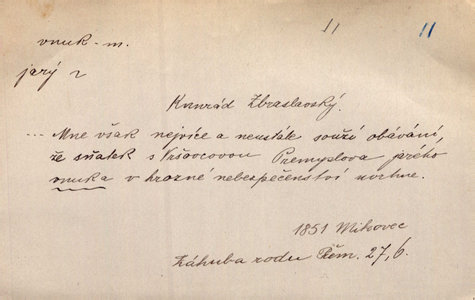 vnuk - m.
11 11
jarý 2
Konrád Zbraslavský.
... Mne však nejvíce a neustále souží obávání,
že sňatek s Vršovcovou Přemyslova jarého
vnuka v hrozné nebezpečenství uvrhne.
1851 Mikovec
Záhuba rodu Přem. 27, 6.